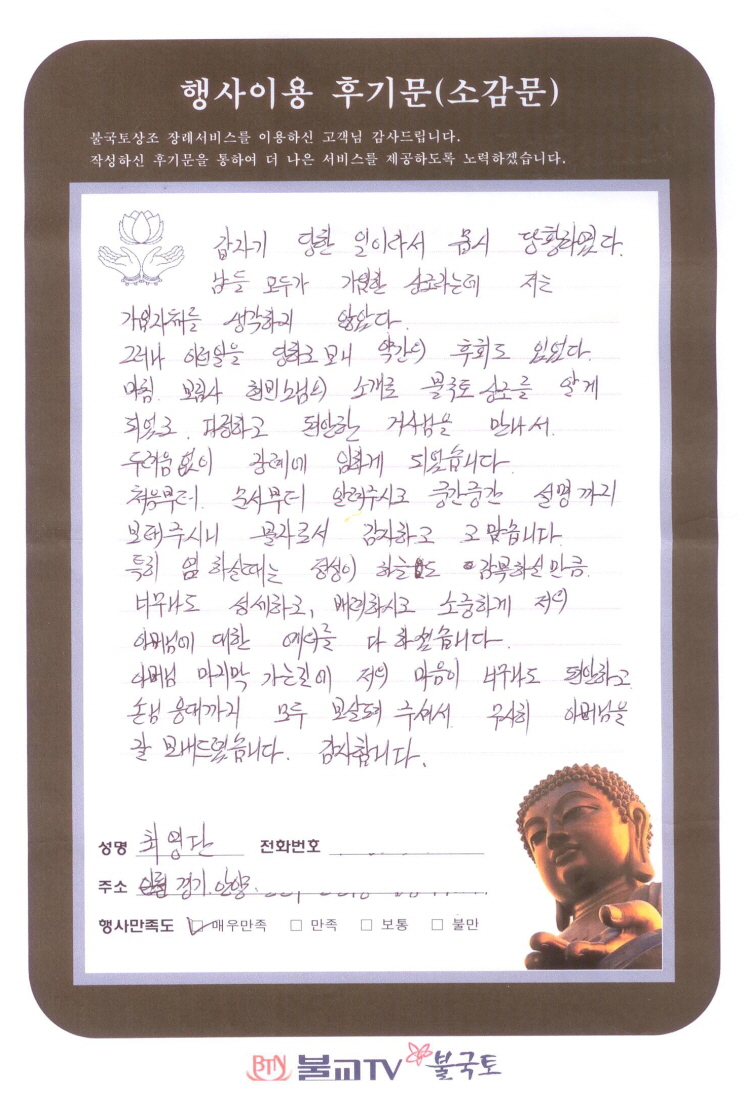 행사이용 후기문(소감문)
불국토상조 장례서비스를 이용하신 고객님 감사드립니다.
작성하신 후기문을 통하여 더 나은 서비스를 제공하도록 노력하겠습니다.
갑자기 당한 일이라서 몹시 당황하였다.
남들 모두가 가입한 상조라는데 저는
가입자체를 생각하지 않았다.
그러나 이런일을 당하고 보니 약간의 후회도 있었다.
마침 보림사 현빈스님의 소개로 불국토 상조를 알게
되었고, 자상하고 편안한 거사님을 만나서
두려움 없이 장례에 임하게 되었습니다.
처음부터 순서부터 알려주시고 중간중간 설명까지
보태주시니 몰라로서 감사하고 고맙습니다.
특히 염 하실때는 정성이 하늘도 감복하실만큼
너무나도 섬세하고, 배려하시고 소중하게 저의
아버님에 대한 예의를 다 하셨습니다.
아버님 마지막 가는길에 저의 마음이 너무나도 편안하고
손님 응대까지 모두 보살펴 주셔서 무사히 아버님을
잘 보내드렸습니다. 감사합니다.
성명 최영단 전화번호
주소 경기.안양.
행사만족도 ☑ 매우만족 □ 만족 □ 보통 □ 불만
BTN 불교TV 불국토